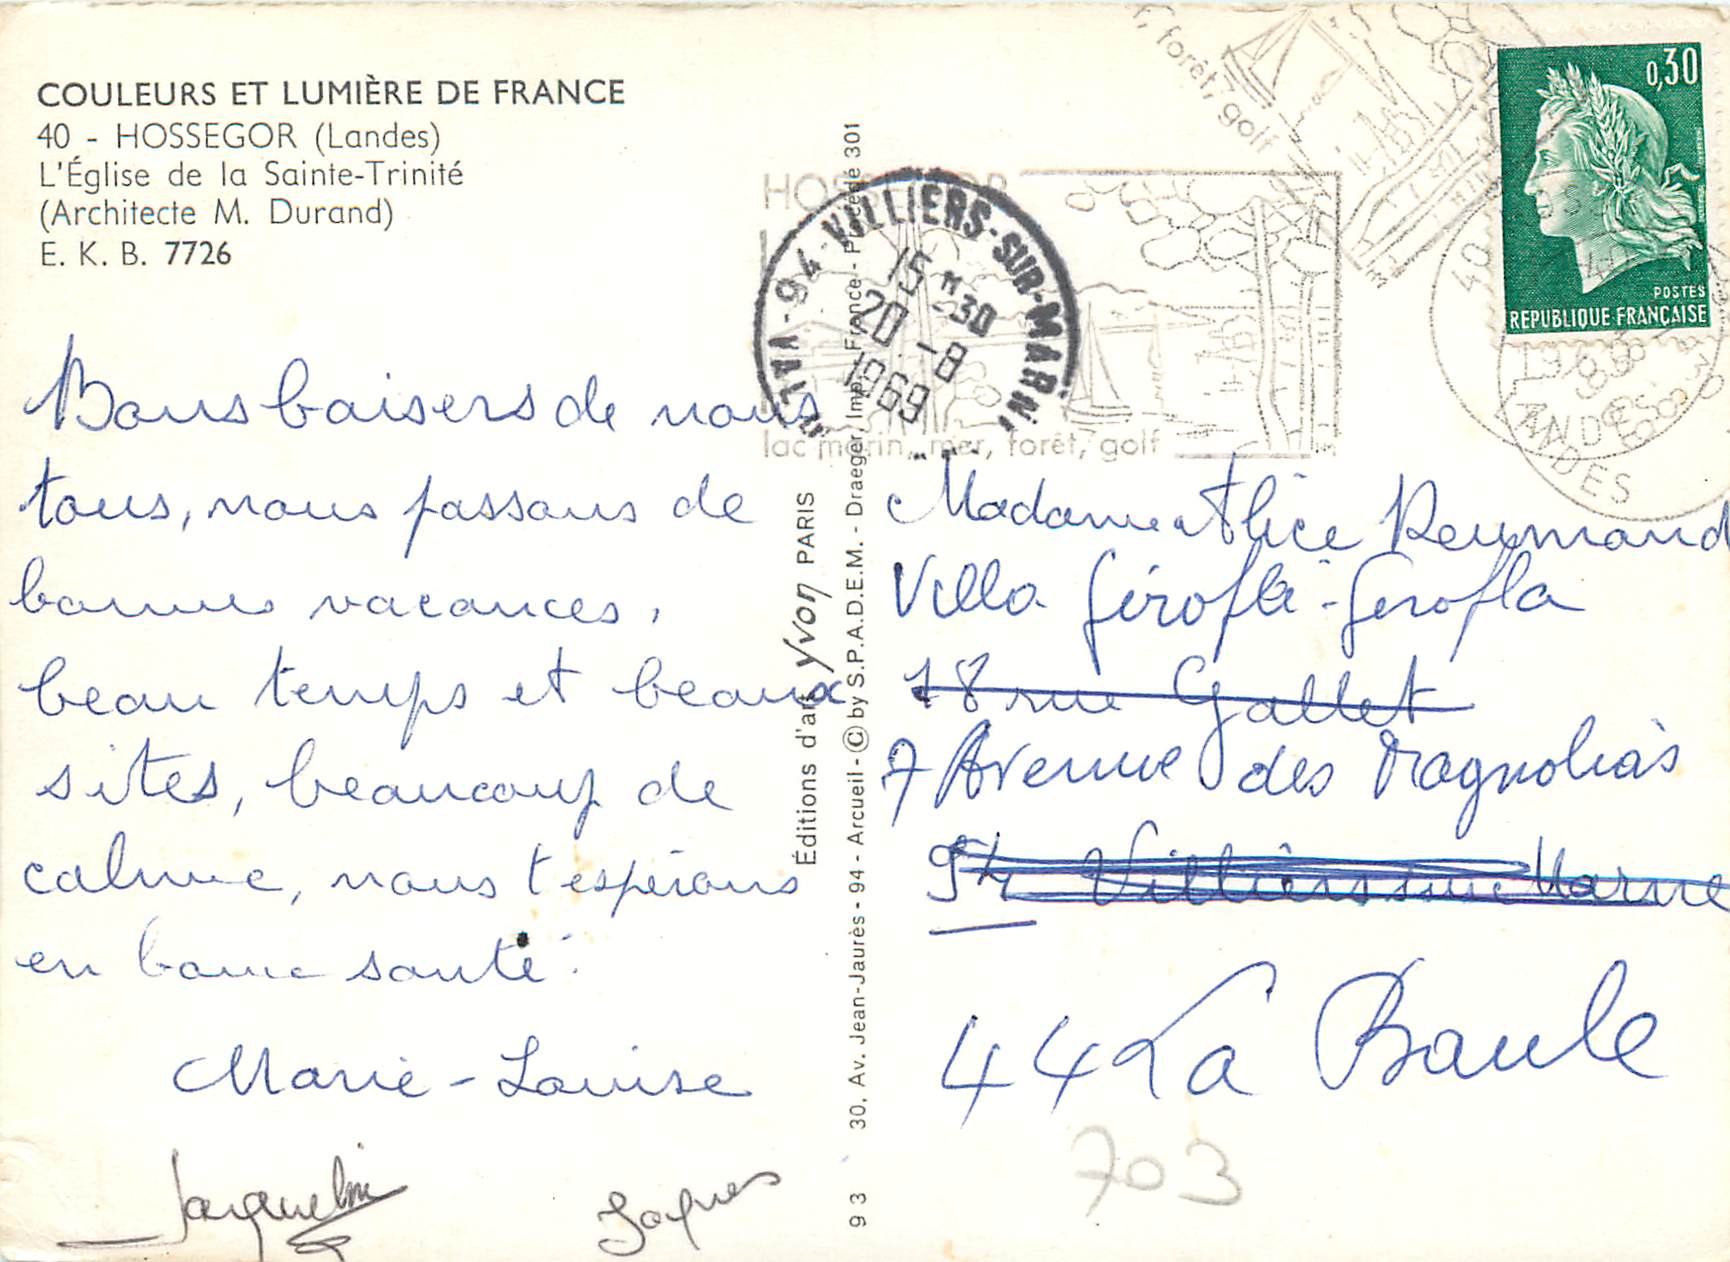 COULEURS ET LUMIÈRE DE FRANCE
40 - HOSSEGOR (Landes)
L'Église de la Sainte-Trinité
(Architecte M. Durand)
E. K. B. 7726
Bons baisers de nous
tous, nous passons de
bonnes vacances,
beau temps et beaux
sites, beaucoup de
calme, nous t'espérons
en bonne santé.
Marie-Louise
Jacqueline
Jacques
Éditions d'art yvon PARIS
93 30, Av. Jean-Jaurès - 94 - Arcueil - © by S.P.A.D.E.M. - Draeger, Imp. France - Procédé 301
forêt, golf
HOSSEGOR
lac marin, mer, forêt, golf
94 - VILLIERS-SUR-MARNE
VAL
15 H 30
20 - 8
1969
0,30
POSTES
REPUBLIQUE FRANÇAISE
LANDES
Madame Alice
Villa Giroflé-Girofla
18 rue Gallet
7 Avenue des Magnolias
94 Villiers sur Marne
44 La Baule
703